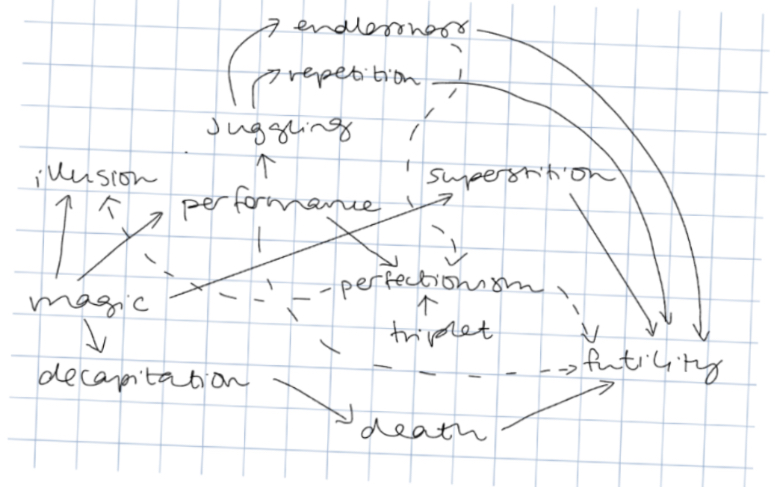 endlessness
repetition
juggling
illusion
superstition
performance
perfectionism
magic
triplet
futility
decapitation
death